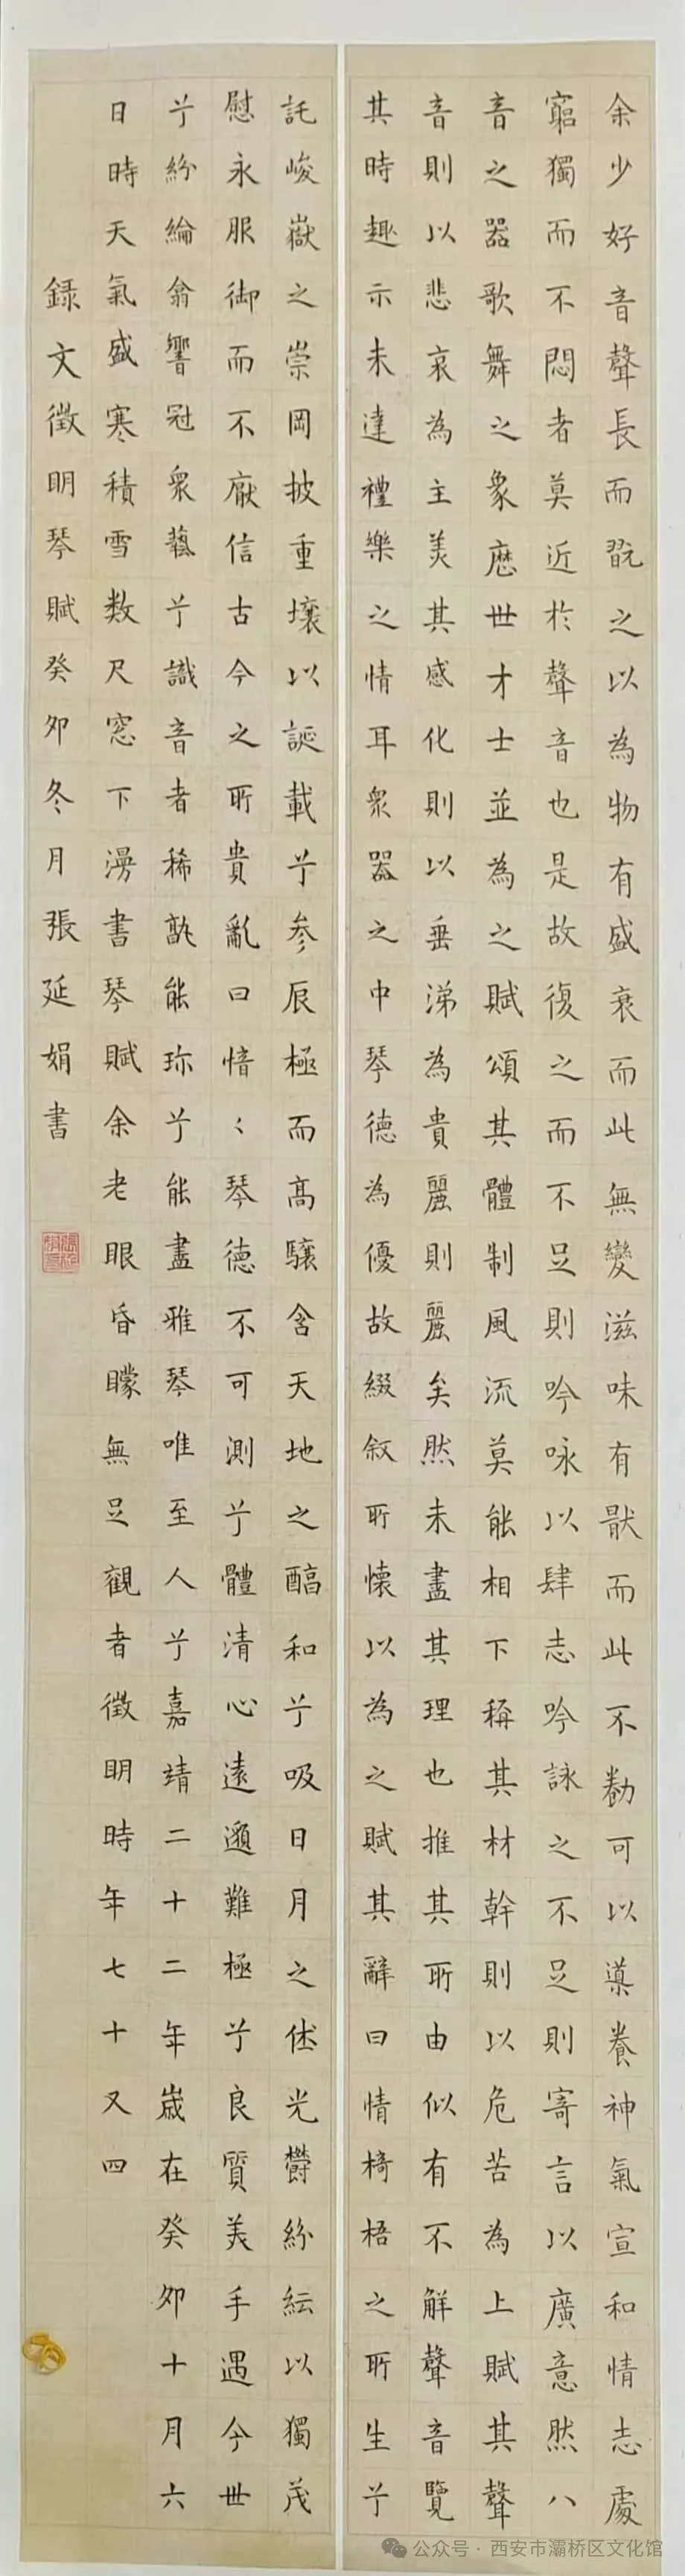 余少好音聲長而翫之以為物有盛衰而此無變滋味有猒而此不勌可以導養神氣宣和情志處
窮獨而不悶者莫近於聲音也是故復之而不足則吟咏以肆志吟詠之不足則寄言以廣意然八
音之器歌舞之象歴世才士並為之賦頌其體制風流莫能相下稱其材幹則以危苦為上賦其聲
音則以悲哀為主美其感化則以垂涕為貴麗則麗矣然未盡其理也推其所由似有不解聲音覽
其時趣示未達禮樂之情耳衆器之中琴德為優故綴叙所懷以為之賦其辭曰情椅梧之所生兮
託峻嶽之崇岡披重壤以誕載兮参辰極而高驤含天地之醕和兮吸日月之休光欝紛紜以獨茂
慰永服御而不厭信古今之所貴亂曰愔〻琴德不可測兮體清心遠邈難極兮良質美手遇今世
兮紛綸翕響冠衆藝兮識音者稀孰能珎兮能盡雅琴唯至人兮嘉靖二十二年歲在癸卯十月六
日時天氣盛寒積雪数尺窓下漫書琴賦余老眼昏矇無足觀者徵明時年七十又四
録文徵明琴賦癸卯冬月張延娟書
公众号·西安市灞桥区文化馆